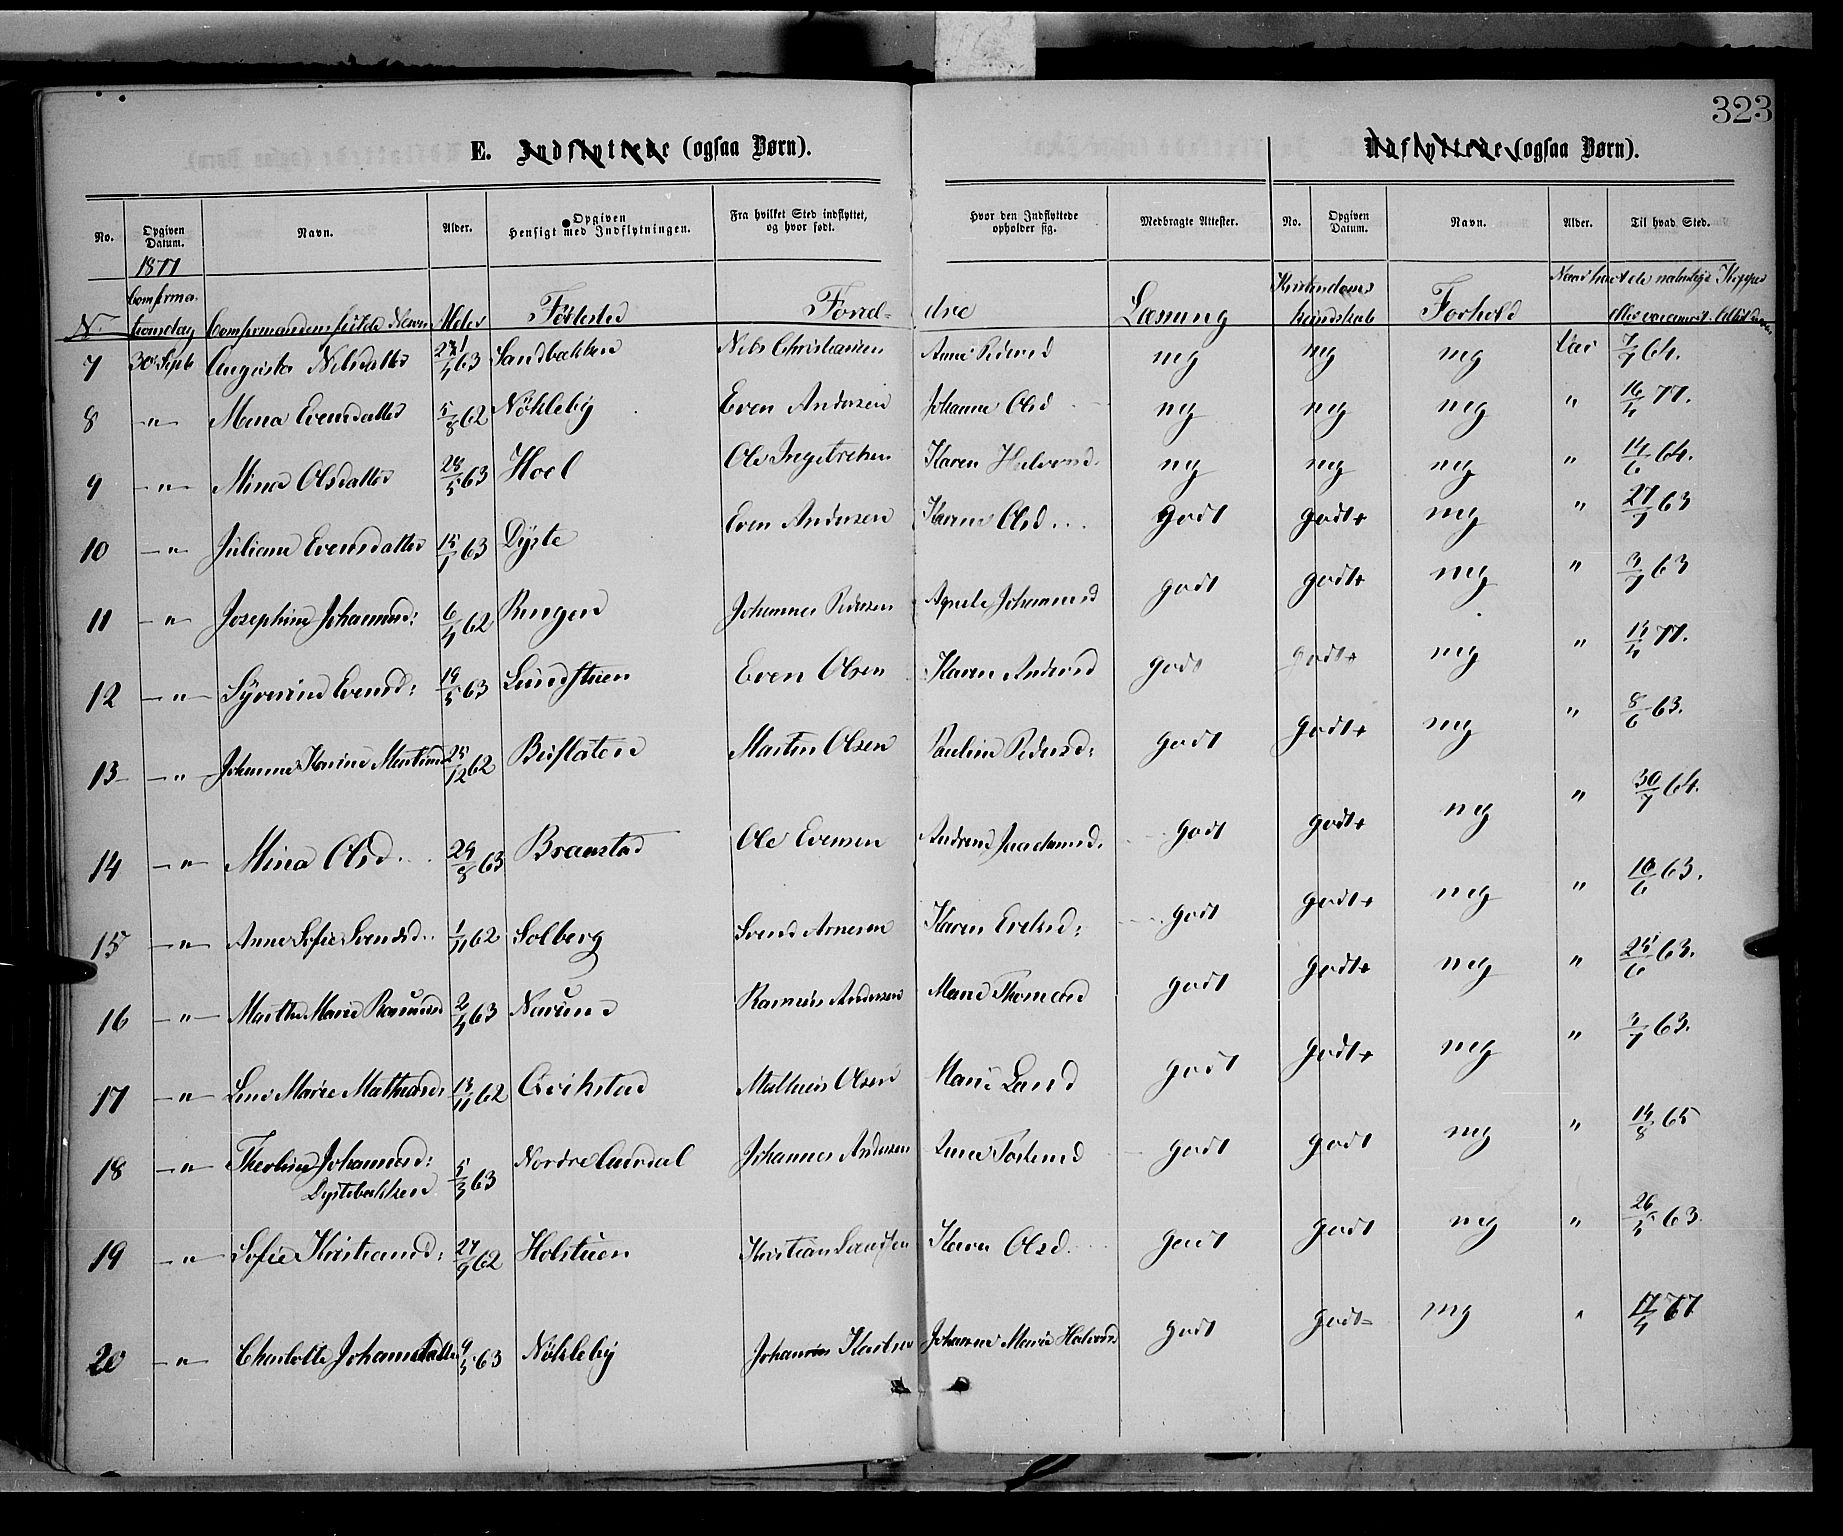 323
E. Indflyttede (ogsaa Børn). Udflyttede (ogsaa Børn).
No. Opgiven Datum. Navn. Alder. Opgiven Hensigt med Indflytningen. Fra hvilket Sted indflyttet, og hvor født. Hvor den Indflyttede opholder sig. Medbragte Attester. No. Opgiven Datum. Navn. Alder. Til hvad Sted.
1877
N. Confirmationsdag Confirmandens fulde Navn Alder Fødested Foræl- dre Læsning Kristendoms kundskab Forhold
7 30 Septb Augusta Nilsdatter 63 Sandbakken Nils Christiansen Anne Pedersd mg mg mg Vac 7/7 64.
8 -"- Mina Evensdatter 5/8 62 Nøkleby Even Andersen Johanne Olsd mg mg mg " 16/4 77.
9 -"- Mina Olsdatter 28/5 63 Hoel Ole Ingebretsen Karen Halvorsd. mg mg mg " 14/6 64.
10 -"- Juliane Evensdatter 15/1 63 Dyste Even Andersen Karen Olsd... godt godt+ mg " 27/7 63
11 -"- Josephine Johannesd: 6/4 62 Ringen Johannes Pedersen Agnete Johannesd godt godt+ mg " 3/7 63
12 -"- Syverine Evensd: 19/5 63 Lundstuen Even Olsen Karen Andersd godt godt+ mg " 77.
13 -"- Johanne Karine Martinsd 25/12 62 Buflaten Martin Olsen Pauline Pedersd: godt godt+ mg " 8/6 63.
14 -"- Mina Olsd. 29/5 63 Braastad Ole Evensen Andrea Joachimsd. godt godt+ mg " 30/7 64.
15 -"- Anne Sofie Svendsd.. 1/11 62 Solberg Svend Arnesen Karen Eriksd: godt godt+ mg " 10/6 63.
16 -"- Marthe Marie Rasmusd 2/4 63 Narum Rasmus Andersen Marie Thomasd godt godt+ mg " 25/6 63.
17 -"- Lina Marie Mathiasd: 13/11 62 Qvikstad Mathias Olsen Marie Larsd godt godt+ mg " 3/7 63.
18 -"- Theoline Johannesd: Dystebakken 5/3 63 Nordre Aurdal Johannes Andersen Lina Tostensd godt godt mg " 14/8 65
19 -"- Sofie Kristiansd: 27/9 62 Holstuen Kristian Larsen Karen Olsd. godt godt mg " 26/5 63.
20 -"- Charlotte Johansdatter 9/5 63 Nøkleby Johannes Karlsen Johanne Marie Halvorsd godt godt mg " 17/4 77